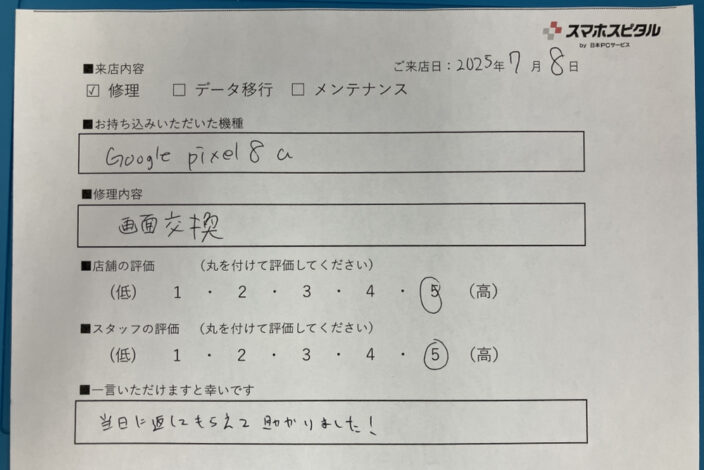 スマホスピタル
by 日本PCサービス
■来店内容
ご来店日：2025年7月8日
☑ 修理 □ データ移行 □ メンテナンス
■お持ち込みいただいた機種
Google pixel 8 a
■修理内容
画面交換
■店舗の評価 （丸を付けて評価してください）
（低） 1 ・ 2 ・ 3 ・ 4 ・ 5 （高）
■スタッフの評価 （丸を付けて評価してください）
（低） 1 ・ 2 ・ 3 ・ 4 ・ 5 （高）
■一言いただけますと幸いです
当日に返してもらえて助かりました！